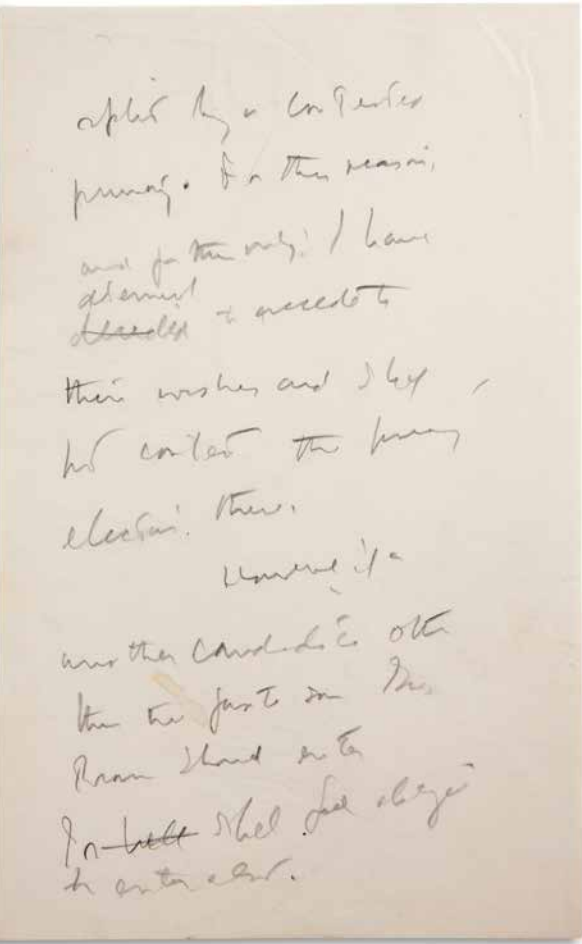 split by a contested
primary. For this reason,
and for this only, I have
determined
decided to accede to
their wishes and shall
not contest the primary
election there.
However if a
another candidate other
than the favorite son Gov.
should enter
I shall feel obliged
to enter also.